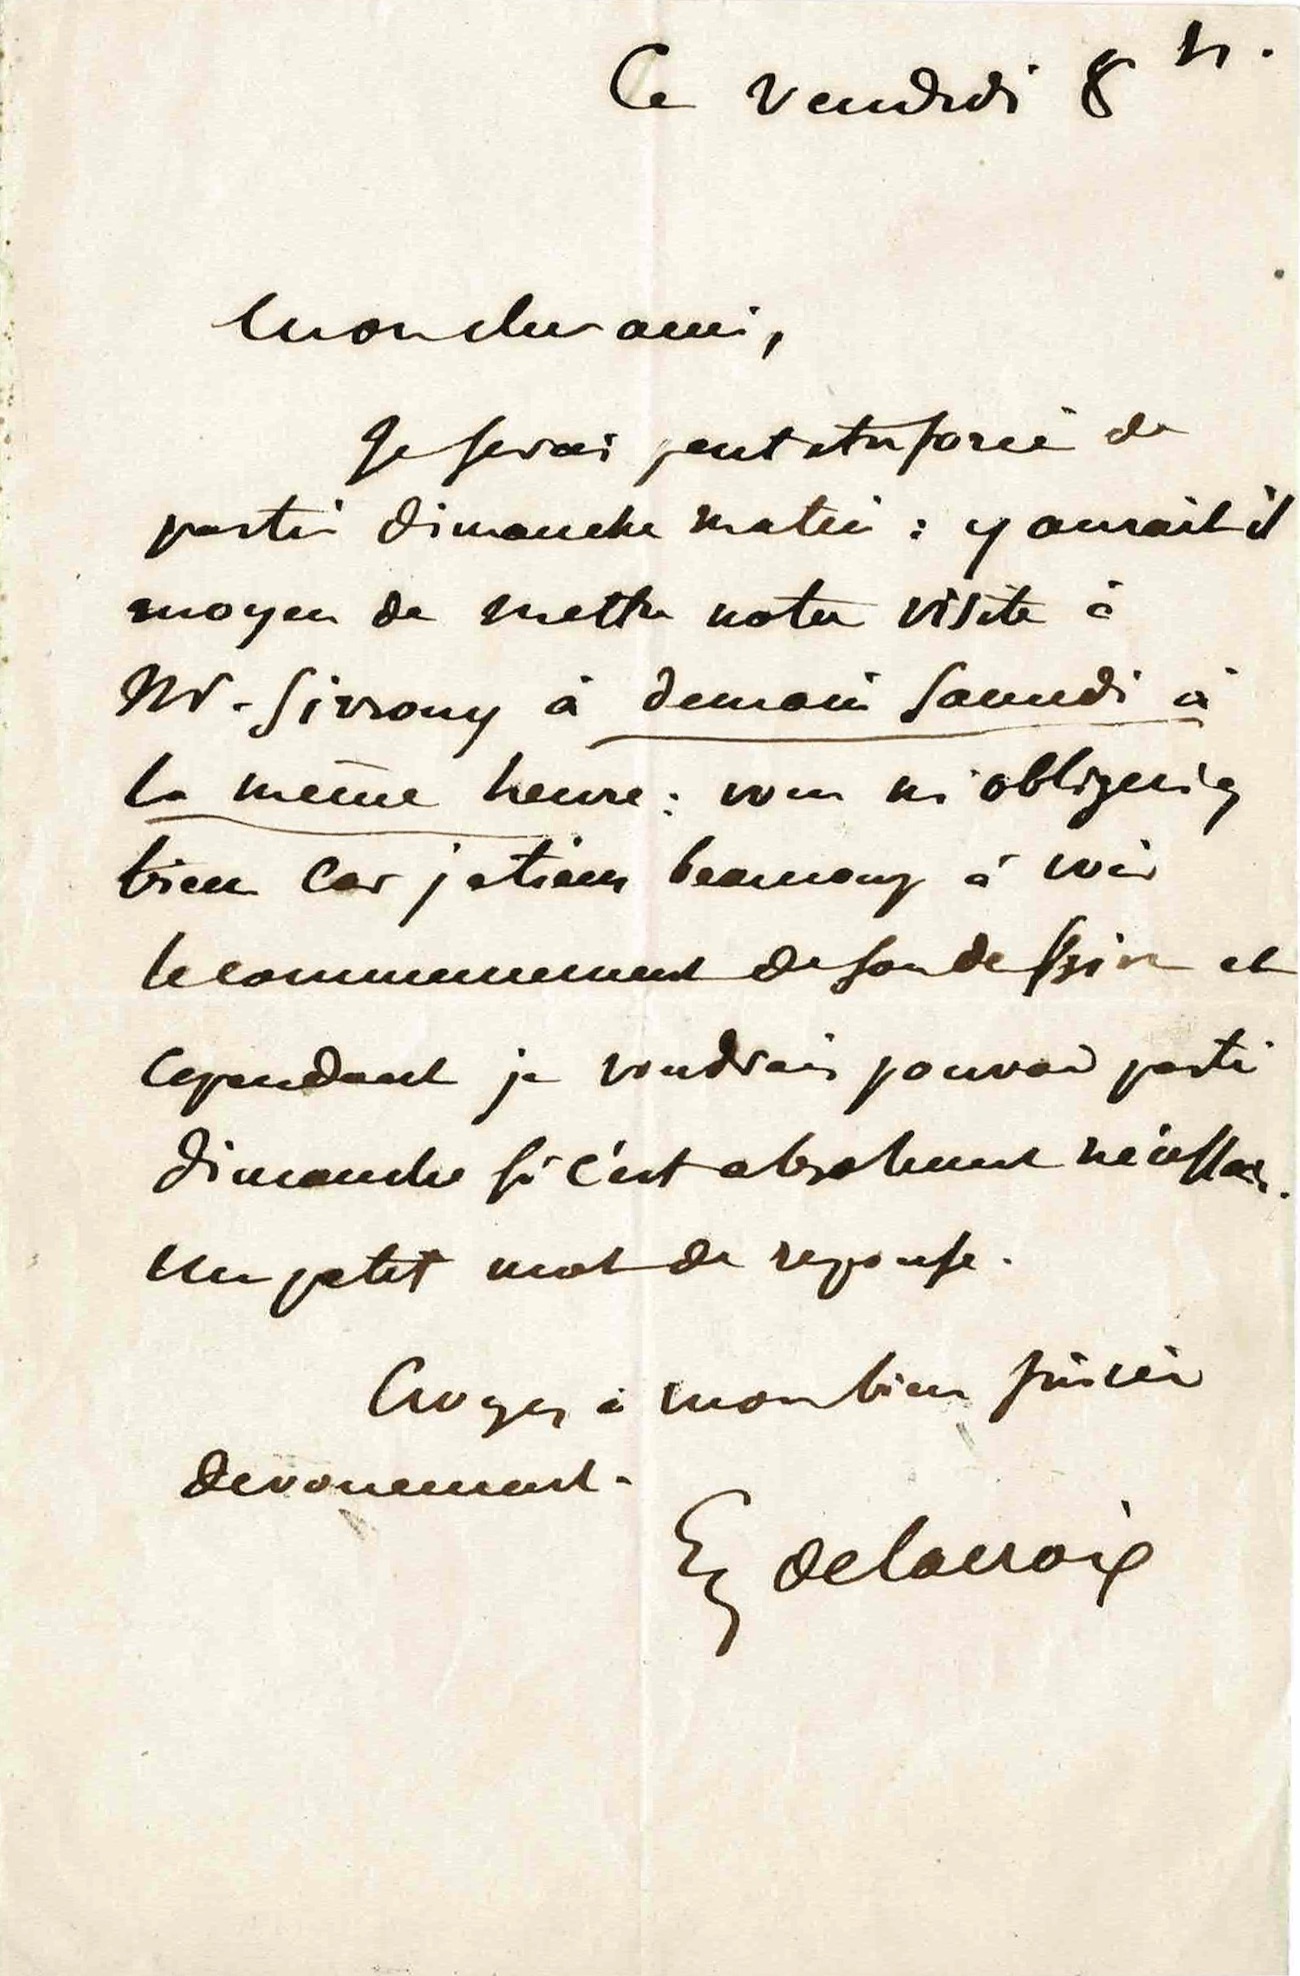 Ce vendredi 8 h.
Mon cher ami,
Je serai peut etre forcé de
partir dimanche matin : y aurait il
moyen de mettre notre visite à
Mr. Sirrouy à demain samedi à
la même heure : vous m'obligeriez
bien car je tiens beaucoup à voir
le commencement de son dessin et
cependant je voudrais pouvoir partir
dimanche si c'est absolument nécessaire.
Un petit mot de reponse.
Croyez à mon bien sincère
devouement.
Eg Delacroix